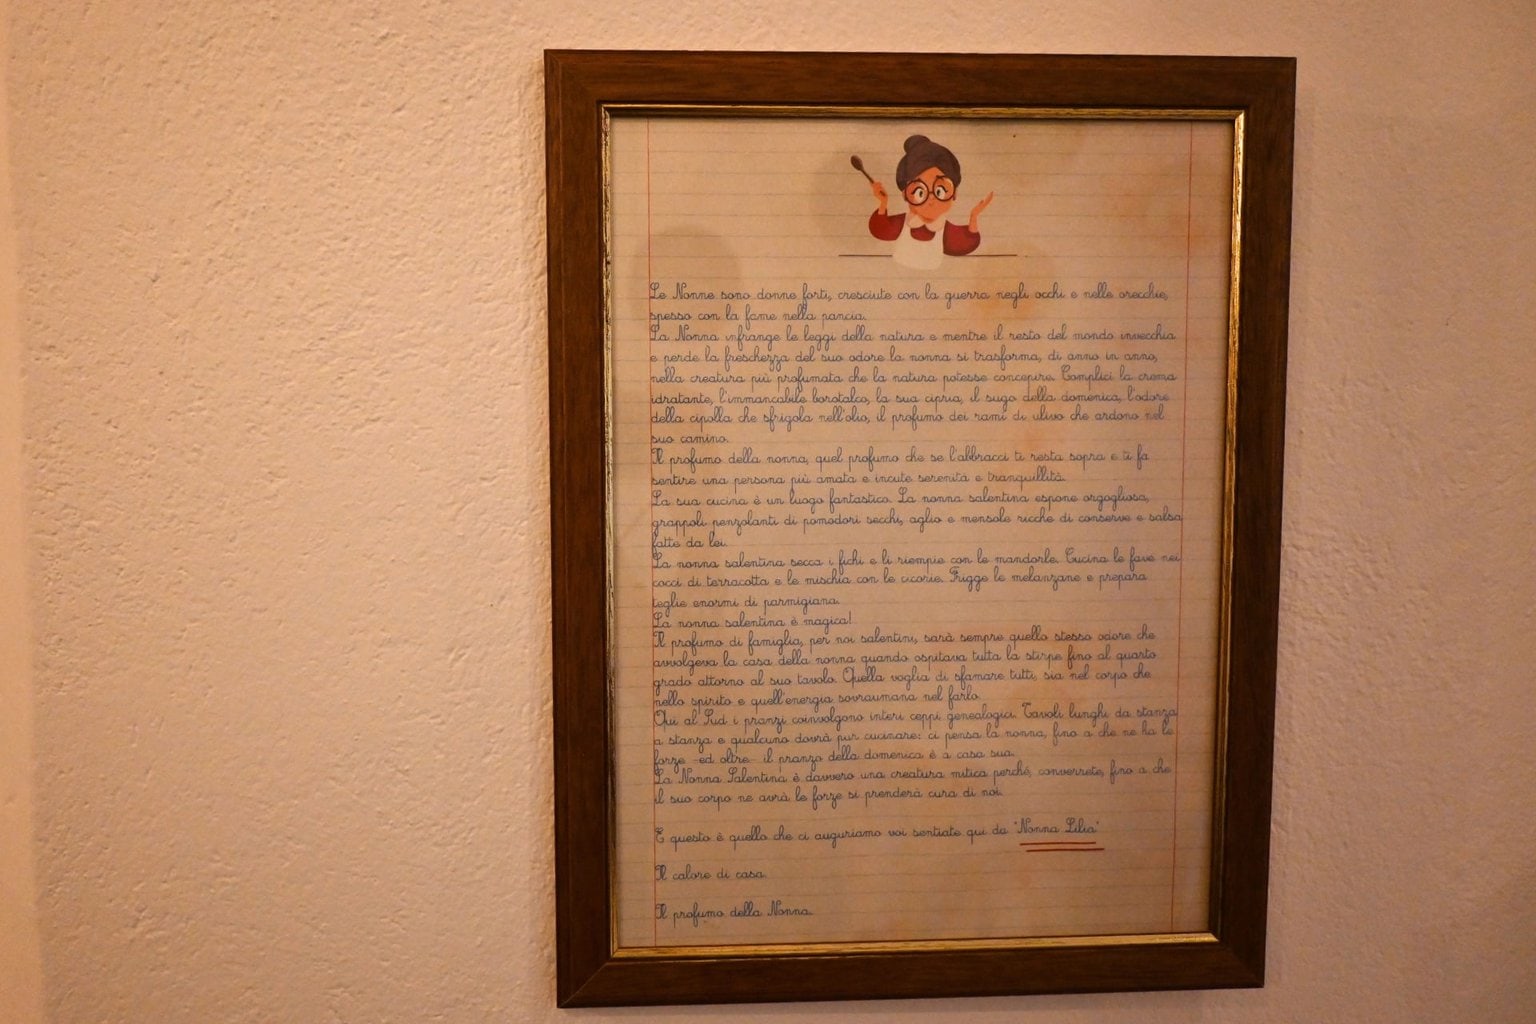 Le Nonne sono donne forti, cresciute con la guerra negli occhi e nelle orecchie,
spesso con la fame nella pancia.
La Nonna infrange le leggi della natura e mentre il resto del mondo invecchia
e perde la freschezza del suo odore la nonna si trasforma, di anno in anno,
nella creatura più profumata che la natura potesse concepire. Complici la crema
idratante, l'immancabile borotalco, la sua cipria, il sugo della domenica, l'odore
della cipolla che sfrigola nell'olio, il profumo dei rami di ulivo che ardono nel
suo camino.
Il profumo della nonna, quel profumo che se l'abbracci ti resta sopra e ti fa
sentire una persona più amata e incute serenità e tranquillità.
La sua cucina è un luogo fantastico. La nonna salentina espone orgogliosa,
grappoli penzolanti di pomodori secchi, aglio e mensole ricche di conserve e salsa
fatte da lei.
La nonna salentina secca i fichi e li riempie con le mandorle. Cucina le fave nei
cocci di terracotta e le mischia con le cicorie. Frigge le melanzane e prepara
teglie enormi di parmigiana.
La nonna salentina è magica!
Il profumo di famiglia, per noi salentini, sarà sempre quello stesso odore che
avvolgeva la casa della nonna quando ospitava tutta la stirpe fino al quarto
grado attorno al suo tavolo. Quella voglia di sfamare tutti, sia nel corpo che
nello spirito e quell'energia sovraumana nel farlo.
Qui al Sud i pranzi coinvolgono interi ceppi genealogici. Tavoli lunghi da stanza
a stanza e qualcuno dovrà pur cucinare: ci pensa la nonna, fino a che ne ha le
forze -ed oltre- il pranzo della domenica è a casa sua.
La Nonna Salentina è davvero una creatura mitica perché, converrete, fino a che
il suo corpo ne avrà le forze si prenderà cura di noi.
E questo è quello che ci auguriamo voi sentiate qui da "Nonna Lilia"
Il calore di casa.
Il profumo della Nonna.